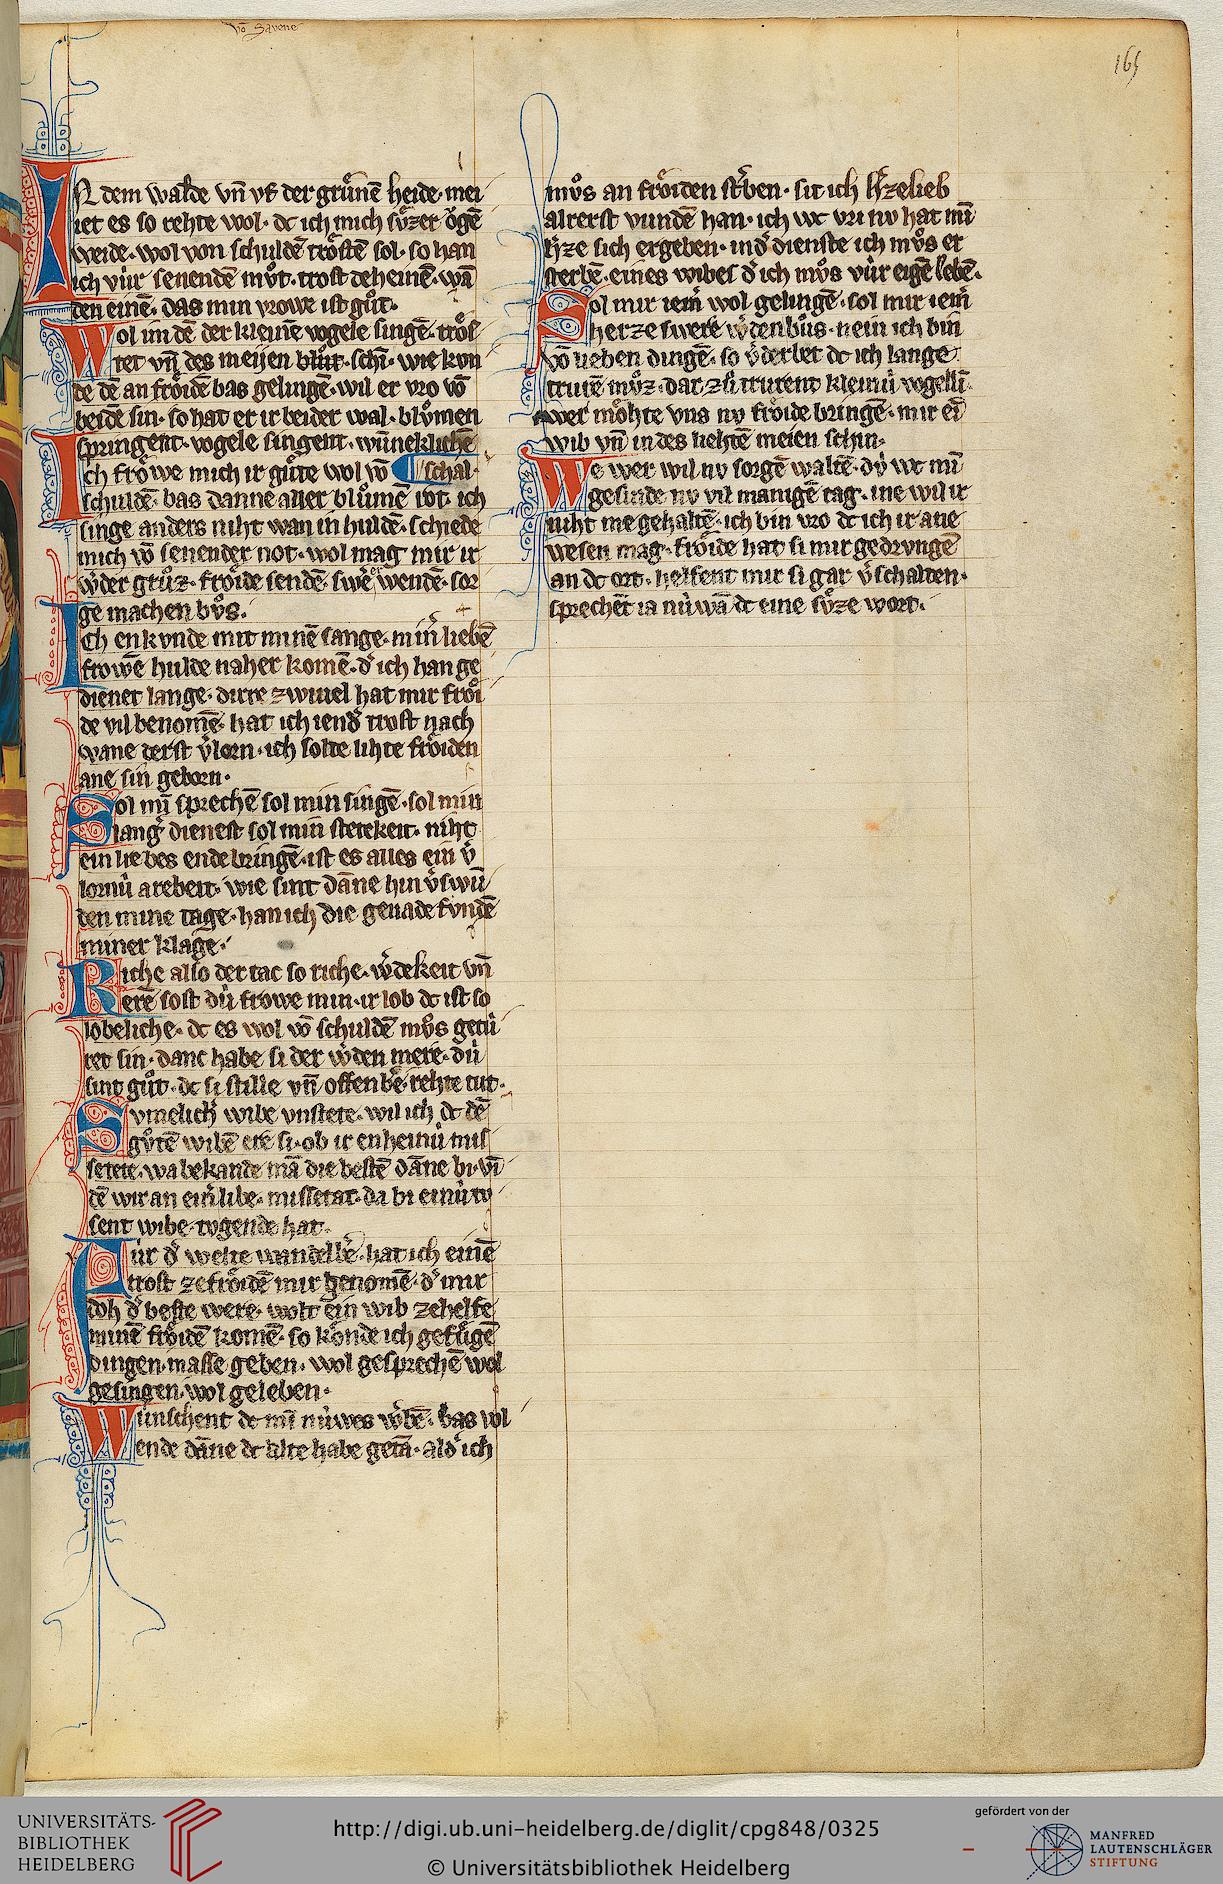 võ Savene
165
IN dem walde vñ vf der grünē heide· mei
iet es so rehte wol· dc ich mich svͦzer oͮgē
weide· wol von schuldē troͤstē sol· so han
ich vúr senendē mvͦt· trost deheinē· wā
den einē· das min vrowe ist guͦt·
Wol im dē der kleinē vogele singē· troͤs
tet vñ des meijen bluͦt· schī· wie kon
de dē an froͤidē bas gelingē· wil er vro vō
beidē sin· so hat er ir beider wal· blvͦmen
springent· vogele singent· wūneklichē
Ich froͤwe mich ir guͤte wol vō schal·
schuldē· bas danne aller blvͦmē rot· ich
singe anders niht wan in huldē· schiede
mich vō senender not· wol mag mir ir
wʼder grvͦz· froͤide sendē· sweʼ wendē· sor
ge machen bvͦs·
Ich enkvnde mit minē sange· minʼ liebē
frowē hulde naher komē· dʼ ich han ge
dienet lange· dirre zwiuel hat mir froͤi
de vil benomē· hat ich iendʼ trost nach
wane derst vʼlorn· ich solte lihte froͤiden
ane sin geborn·
Sol mī sprechē sol min singē· sol min
langʼ dienest sol min stetekeit· niht
ein liebes ende bringē· ist es alles ein vʼ
lornú arebeit· wie sint dāne hin vʼswū
den mine tage· han ich die genade fvndē
miner klage·
Riche also der tac so riche· wʼdekeit vñ
erē sost dú frowe min· ir lob dc ist so
lobeliche· dc es wol vō schuldē mvͦs getú
ret sin· danc habe si der wʼden mere· dú
sint guͦt· dc si stille vñ offenbʼe· rehte tut·
Svmelichʼ wibe vnstete· wil ich dc dē
gvͦtē wibē ere si· ob ir enheinú mis
setete· wa bekande mā die bestē dāne bi· vī
dē wir an einʼ libe· missetat· da bi einú tv
sent wibe· tvgende hat·
Fúr dʼ welte wandelbʼe· hat ich einē
trost ze froͤidē mir genomē· dʼ mir
doh dʼ beste were· wolt ein wib ze helfe
minē froͤidē komē· so koͤnde ich gefuͤgē
dingen· masse geben· wol gesprechē wol
gesingen· wol geleben·
Wúnschent dc mī núwes wʼbē· bas vol
ende dāne dc alte habe getā· aldʼ ich
mvͦs an froͤiden stʼben· sit ich hʼzelieb
alrerst vundē han· ich wc vri nv hat mī
hʼze sich ergeben· in dʼ dienste ich mvͦs et
sterbē· eines wibes dʼ ich mvͦs vúr eigē lebē·
Sol mir iemʼ wol gelingē· sol mir iemʼ
herze swere wʼden bvͦs· nein ich bin
vō lieben dingē· so vʼderbet dc ich lange
trurē mvͦz· dar zvͦ trurent kleinú vogellī·
wer moͤhte vns nv froͤide bringē· mir eī
wib vñ in des liehtē meien schin·
We wer wil nv sorgē waltē· dú wc mī
gesinde nv vil manigē tag· ine wil ir
niht me gehaltē· ich bin vro dc ich ir ane
wesen mag· froͤide hat si mir gedrvngē
an dc ort· helfent mir si gar vʼschalten·
sprechēt ia núwā dc eine svͦze wort·
UNIVERSITÄTS-
BIBLIOTHEK
HEIDELBERG
http://digi.ub.uni-heidelberg.de/diglit/cpg848/0325
© Universitätsbibliothek Heidelberg
gefördert von der
MANFRED
LAUTENSCHLÄGER
STIFTUNG